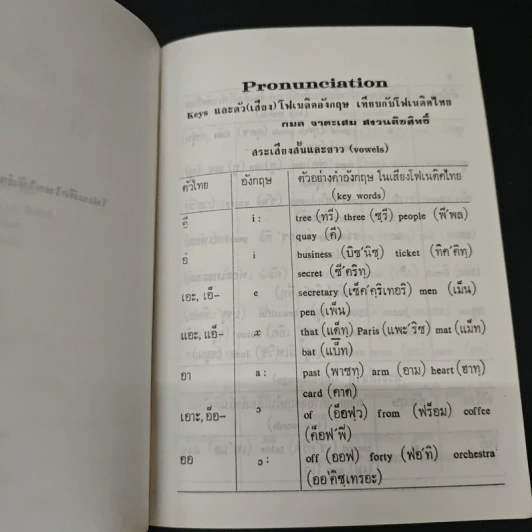 Pronunciation
Keys และตัว(เสียง)โฟเนติคอังกฤษ เทียบกับโฟเนติคไทย
กมล จาตะเสม สงวนลิขสิทธิ์
สระเสียงสั้นและยาว (vowels)
ตัวไทย อังกฤษ ตัวอย่างคำอังกฤษ ในเสียงโฟเนติคไทย
(key words)
อี i : tree (ทรี) three (ซรี) people (พี'พล)
quay (คี)
อิ i business (บิซ'นิซ) ticket (ทิค'คิท)
secret (ซี'คริท)
เอะ, เอ็– e secretary (เซ็ค'คริเทอริ) men (เม็น)
pen (เพ็น)
แอะ, แอ็– æ that (แด็ท) Paris (แพะ'ริซ) mat (แม็ท)
bat (แบ็ท)
อา a : past (พาซท) arm (อาม) heart (ฮาท)
card (คาด)
เอาะ, อ็อ– ɔ of (อ็อฟว) from (ฟร็อม) coffee
(ค็อฟ'ฟี่)
ออ ɔ : off (ออฟ) forty (ฟอ'ทิ) orchestra
(ออ'คิซเทรอะ)